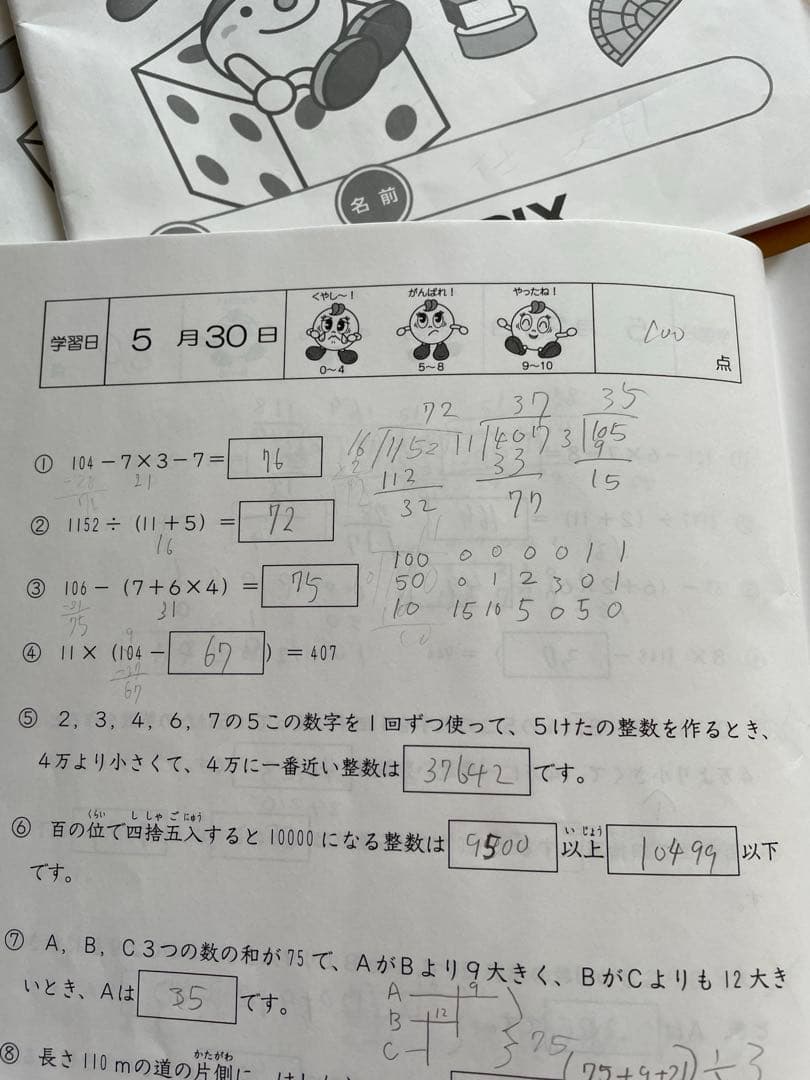 名前
PIX
学習日 5月30日 くやし～！ 0～4 がんばれ！ 5～8 やったね！ 9～10 100点
72 37 35
① 104－7×3－7＝ 76 16 1152 11 407 3 105
－28 76 21 112 33 9
32 77 15
② 1152÷（11＋5）＝ 72
16
100 0 0 0 0 1 1
③ 106－（7＋6×4）＝ 75 50 0 1 2 3 0 1
－31 75 31 10 15 10 5 0 5 0
④ 11×（104－ 67 ）＝407
－37 67
⑤ 2，3，4，6，7の5この数字を1回ずつ使って、5けたの整数を作るとき、
4万より小さくて、4万に一番近い整数は 37642 です。
⑥ 百の位（くらい）で四捨五入（ししゃごにゅう）すると10000になる整数は 9500 以上（いじょう） 10499 以下
です。
⑦ A，B，C3つの数の和が75で、AがBより9大きく、BがCよりも12大き
いとき、Aは 35 です。
A 9
B 12 75
C
⑧ 長さ110mの道の片側（かたがわ）に、
(75+9+21) 3